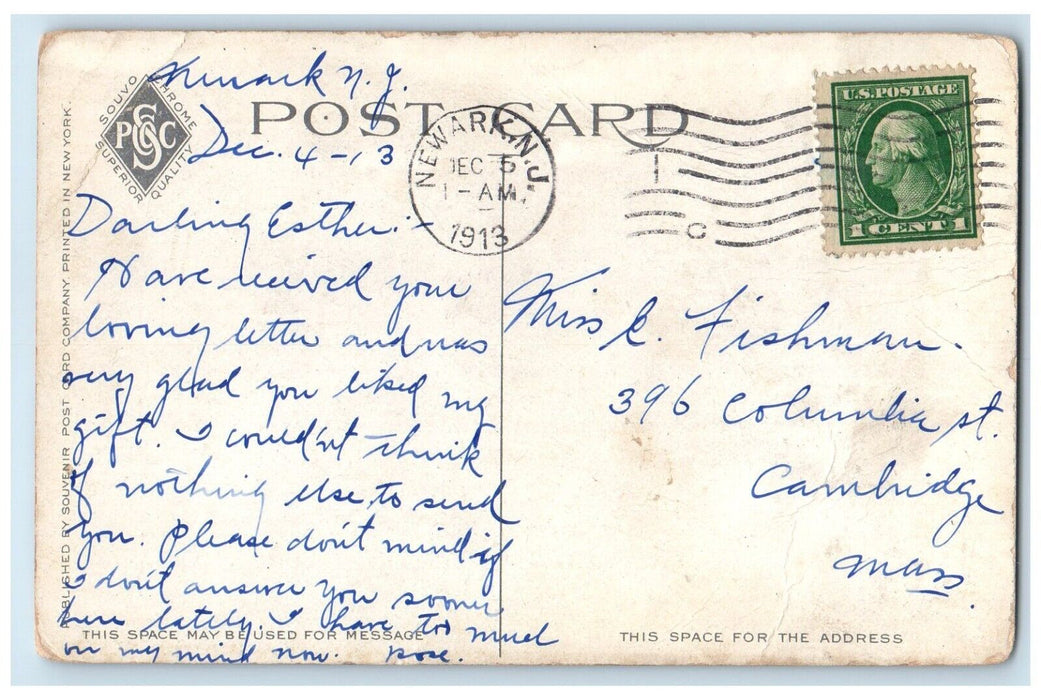 Newark N.J.
Dec. 4-13
Darling Esther:-
Have received your
loving letter and was
very glad you liked my
gift. I could'nt think
of nothing else to send
you. Please don't mind if
I don't answer you sooner
here lately. I have too much
on my mind now. Rose.
POST CARD
SOUVO CHROME
SUPERIOR QUALITY
SPCC
PUBLISHED BY SOUVENIR POST CARD COMPANY. PRINTED IN NEW YORK.
NEWARK, N.J.
DEC 5
1-AM.
1913
1
C
U.S. POSTAGE
1 CENT 1
Miss E. Fishman.
396 Columbia st.
Cambridge
Mass.
THIS SPACE MAY BE USED FOR MESSAGE
THIS SPACE FOR THE ADDRESS